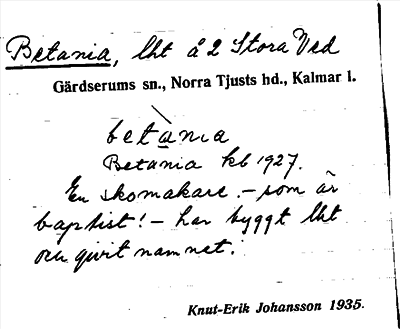 Betania, lht å 2 Stora Ved
Gärdserums sn., Norra Tjusts hd., Kalmar l.
betània
Betania kb 1927.
En skomakare – som är
baptist! – har byggt lht
och givit namnet.
Knut-Erik Johansson 1935.